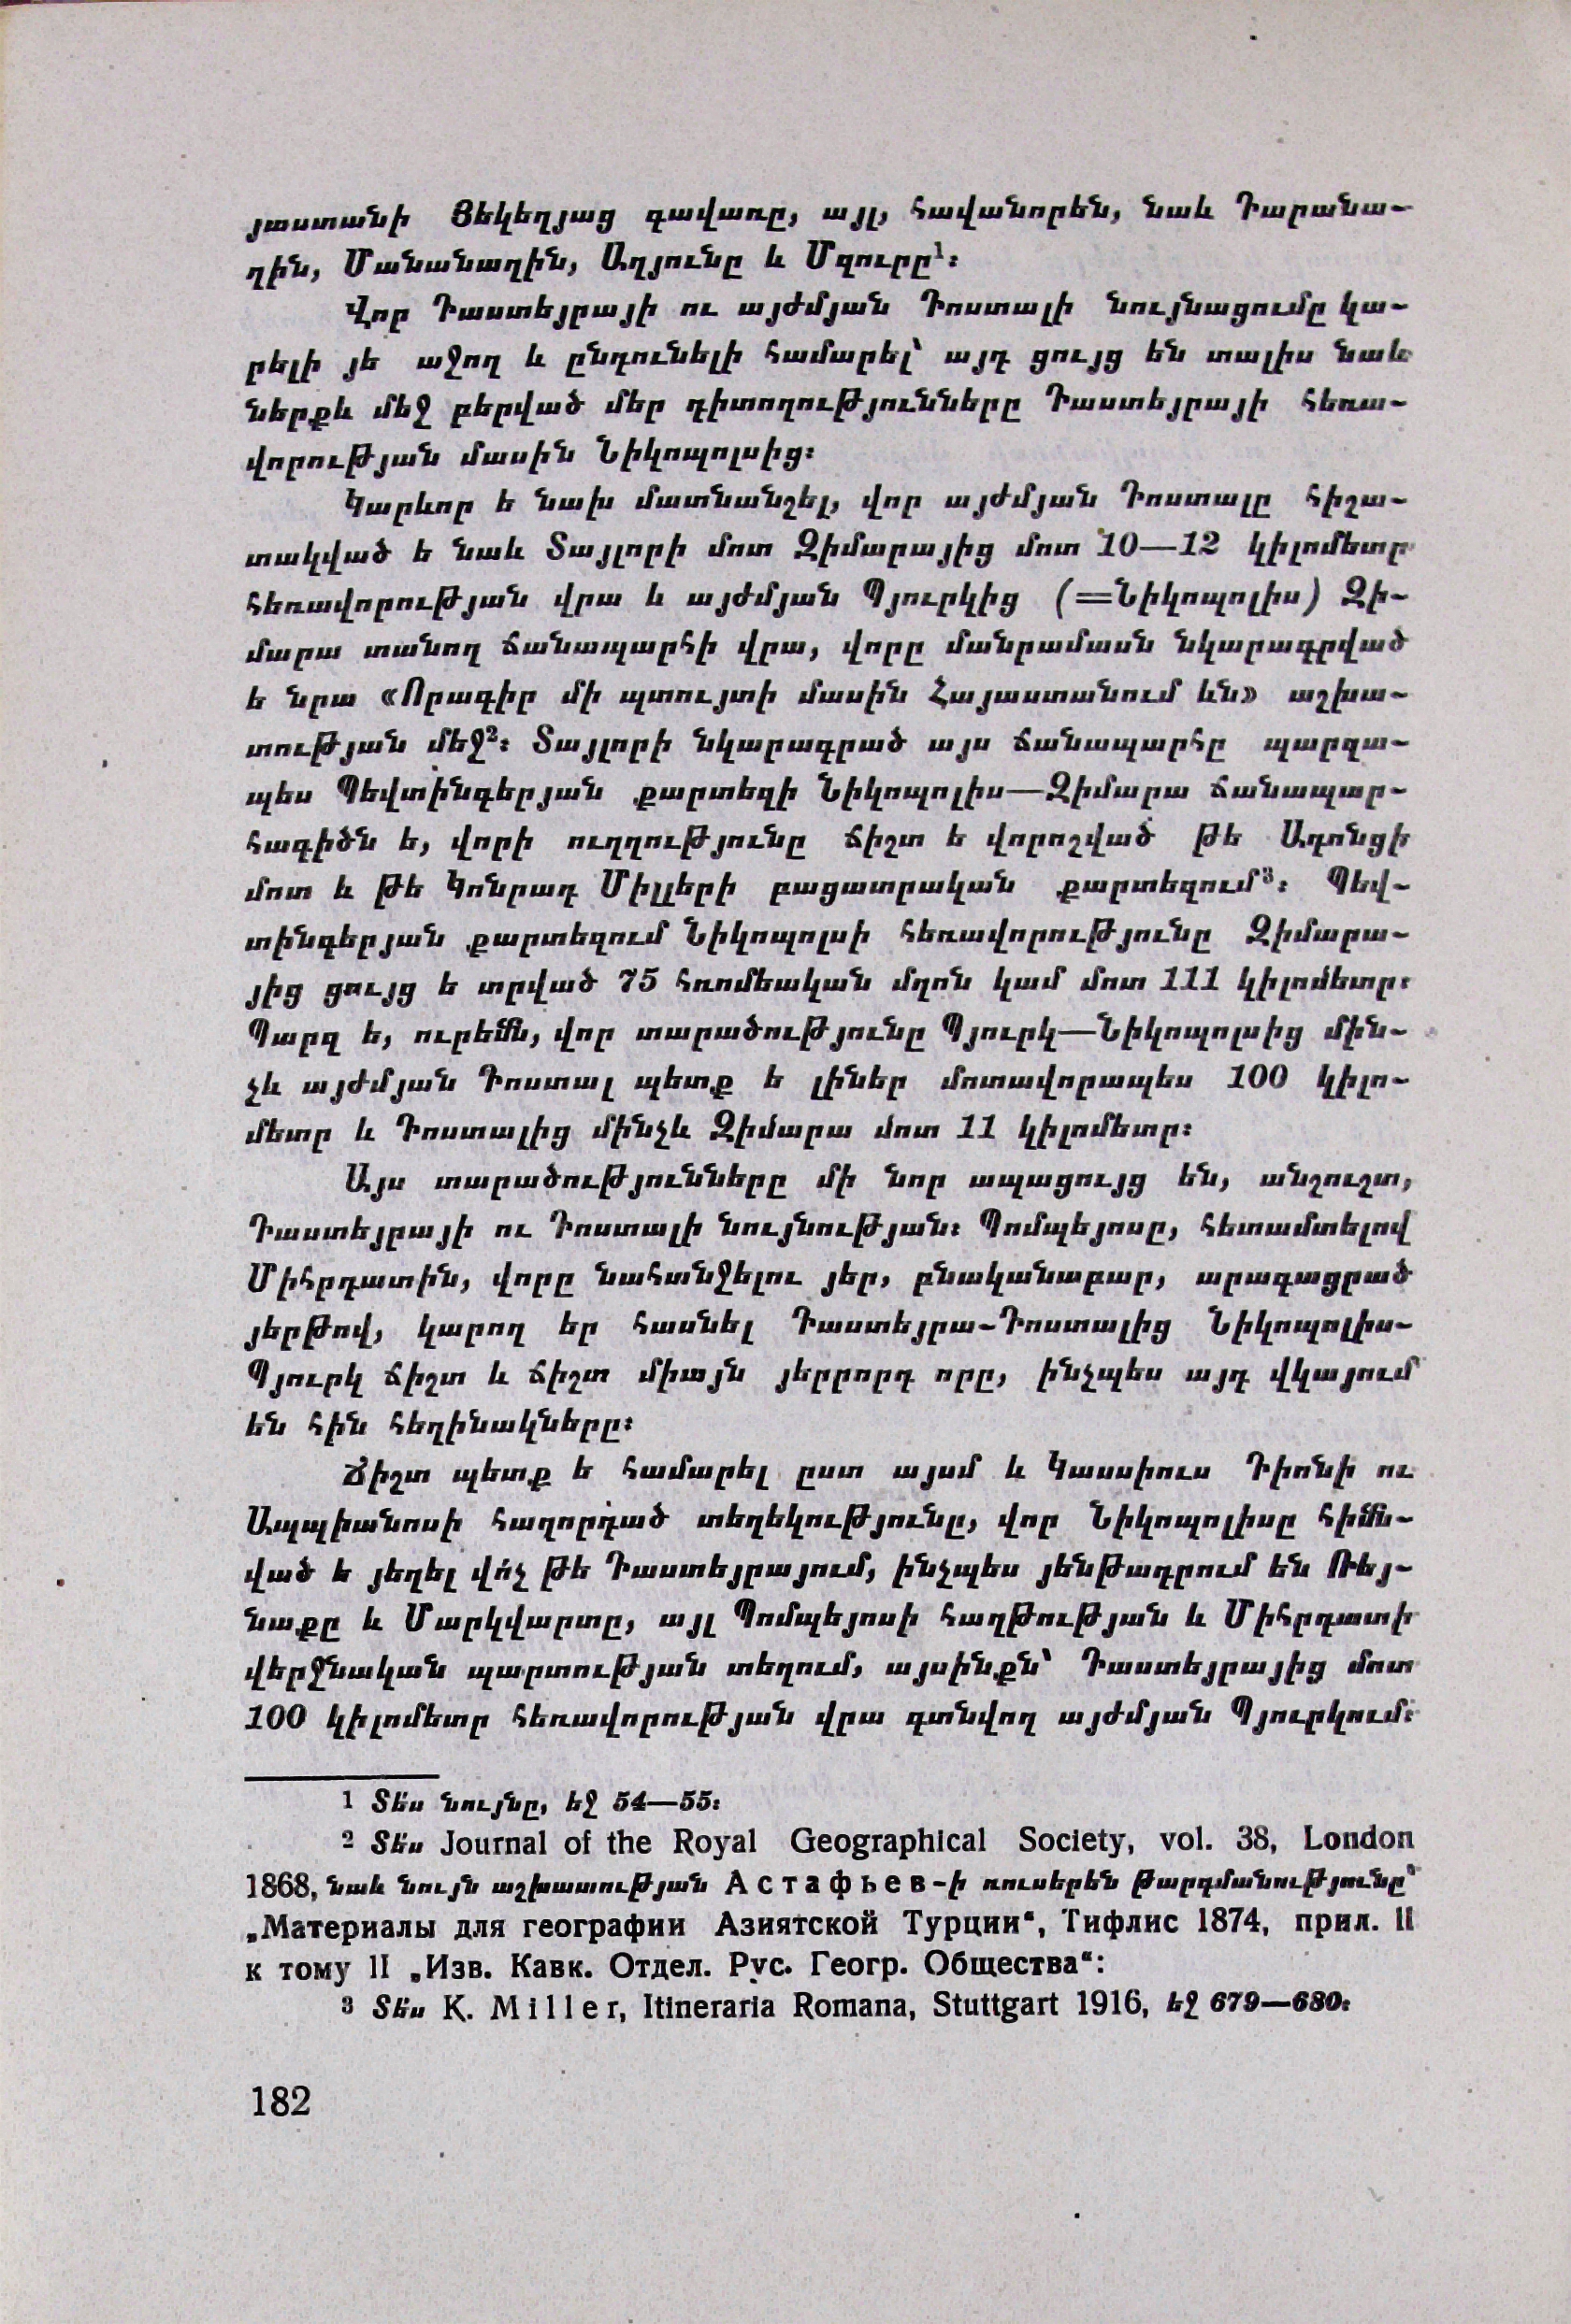 յաստանի Յեկեղյաց գավառը, այլ, հավանորեն, նաև Դարանա-
ղին, Մանանաղին, Աղյունը և Մզուրը¹։
Վոր Դաստեյրայի ու այժմյան Դոստալի նույնացումը կա-
րելի յե աջող և ընդունելի համարել՝ այդ ցույց են տալիս նաև
ներքև մեջ բերված մեր դիտողությունները Դաստեյրայի հեռա-
վորության մասին Նիկոպոլսից։
Կարևոր ե նախ մատնանշել, վոր այժմյան Դոստալը հիշա-
տակված ե նաև Տայլորի մոտ Զիմարայից մոտ 10—12 կիլոմետր
հեռավորության վրա և այժմյան Պյուրկից (=Նիկոպոլիս) Զի-
մարա տանող ճանապարհի վրա, վորը մանրամասն նկարագրված
ե նրա «Որագիր մի պտույտի մասին Հայաստանում ևն» աշխա-
տության մեջ²։ Տայլորի նկարագրած այս ճանապարհը պարզա-
պես Պեվտինգերյան քարտեզի Նիկոպոլիս—Զիմարա ճանապար-
հագիծն ե, վորի ուղղությունը ճիշտ ե վորոշված թե Ադոնցի
մոտ և թե Կոնրադ Միլլերի բացատրական քարտեզում³։ Պեվ-
տինգերյան քարտեզում Նիկոպոլսի հեռավորությունը Զիմարա-
յից ցույց ե տրված 75 հռոմեական մղոն կամ մոտ 111 կիլոմետր։
Պարզ ե, ուրեմն, վոր տարածությունը Պյուրկ—Նիկոպոլսից մին-
չև այժմյան Դոստալ պետք ե լիներ մոտավորապես 100 կիլո-
մետր և Դոստալից մինչև Զիմարա մոտ 11 կիլոմետր։
Այս տարածությունները մի նոր ապացույց են, անշուշտ,
Դաստեյրայի ու Դոստալի նույնության։ Պոմպեյոսը, հետամտելով
Միհրդատին, վորը նահանջելու յեր, բնականաբար, արագացրած
յերթով, կարող եր հասնել Դաստեյրա-Դոստալից Նիկոպոլիս-
Պյուրկ ճիշտ և ճիշտ միայն յերրորդ որը, ինչպես այդ վկայում
են հին հեղինակները։
Ճիշտ պետք ե համարել ըստ այսմ և Կասսիուս Դիոնի ու
Ապպիանոսի հաղորդած տեղեկությունը, վոր Նիկոպոլիսը հիմն-
ված ե յեղել վո՛չ թե Դաստեյրայում, ինչպես յենթադրում են Ռեյ-
նաքը և Մարկվարտը, այլ Պոմպեյոսի հաղթության և Միհրդատի
վերջնական պարտության տեղում, այսինքն՝ Դաստեյրայից մոտ
100 կիլոմետր հեռավորության վրա գտնվող այժմյան Պյուրկում։
1 Տե՛ս նույնը, եջ 54—55։
2 Տե՛ս Journal of the Royal Geographical Society, vol. 38, London
1868, նաև նույն աշխատության Астафьев-ի ռուսերեն թարգմանությունը՝
„Материалы для географии Азиятской Турции“, Тифлис 1874, прил. II
к тому II „Изв. Кавк. Отдел. Рус. Геогр. Общества“:
3 Տե՛ս K. Miller, Itineraria Romana, Stuttgart 1916, եջ 679—680։
182